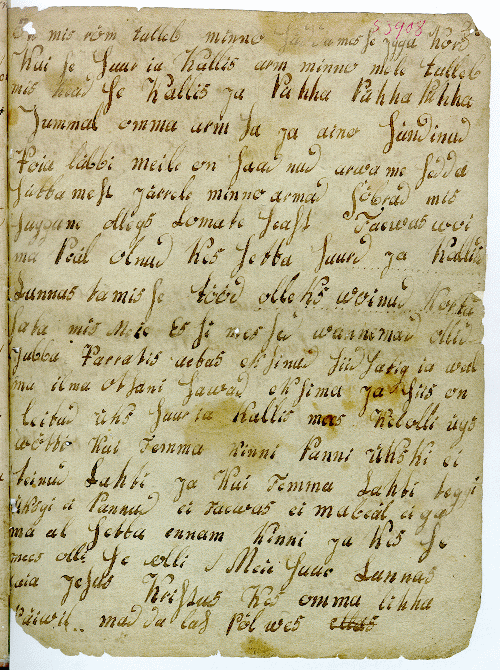 mis rööm tulleb minno
Kui se Suur ia Kallis arm minno mele tulleb
mis head se Kallis ja Pühha Pühha Pühha
Jummal omma arm sa ja aino Sündinud
Poia läbbi meile on Saadnud arwame sedda
jutta mest järrele minno armad Söbrad mis
suggune olleks Lomate seast Taewas woi
ma Peäl olnud Kes setta Suurd ja Kallist
Lunnas tamisse tööd olleks woinud Korda
sata mis Meie Essi messed wannemad olli
jubba Parradis aedas eksinud
ma ilma otsani Sawad eksima ja siis on
leitud üks Suur ia Kallis mees Kelolli üks
wötti Kui Temma Kinni Panni ükski ei
teinud Lahti ja Kui Temma Lahti teggi
ükski ei Pannud ei Taewas ei ma Peäl ei
ma al setta ennam Kinni ja Kes se
mees olli se olli Meie Suur Lunnas
taia Jesus Kristus Kes omma lihha
Päiwil madda las Pöl wes